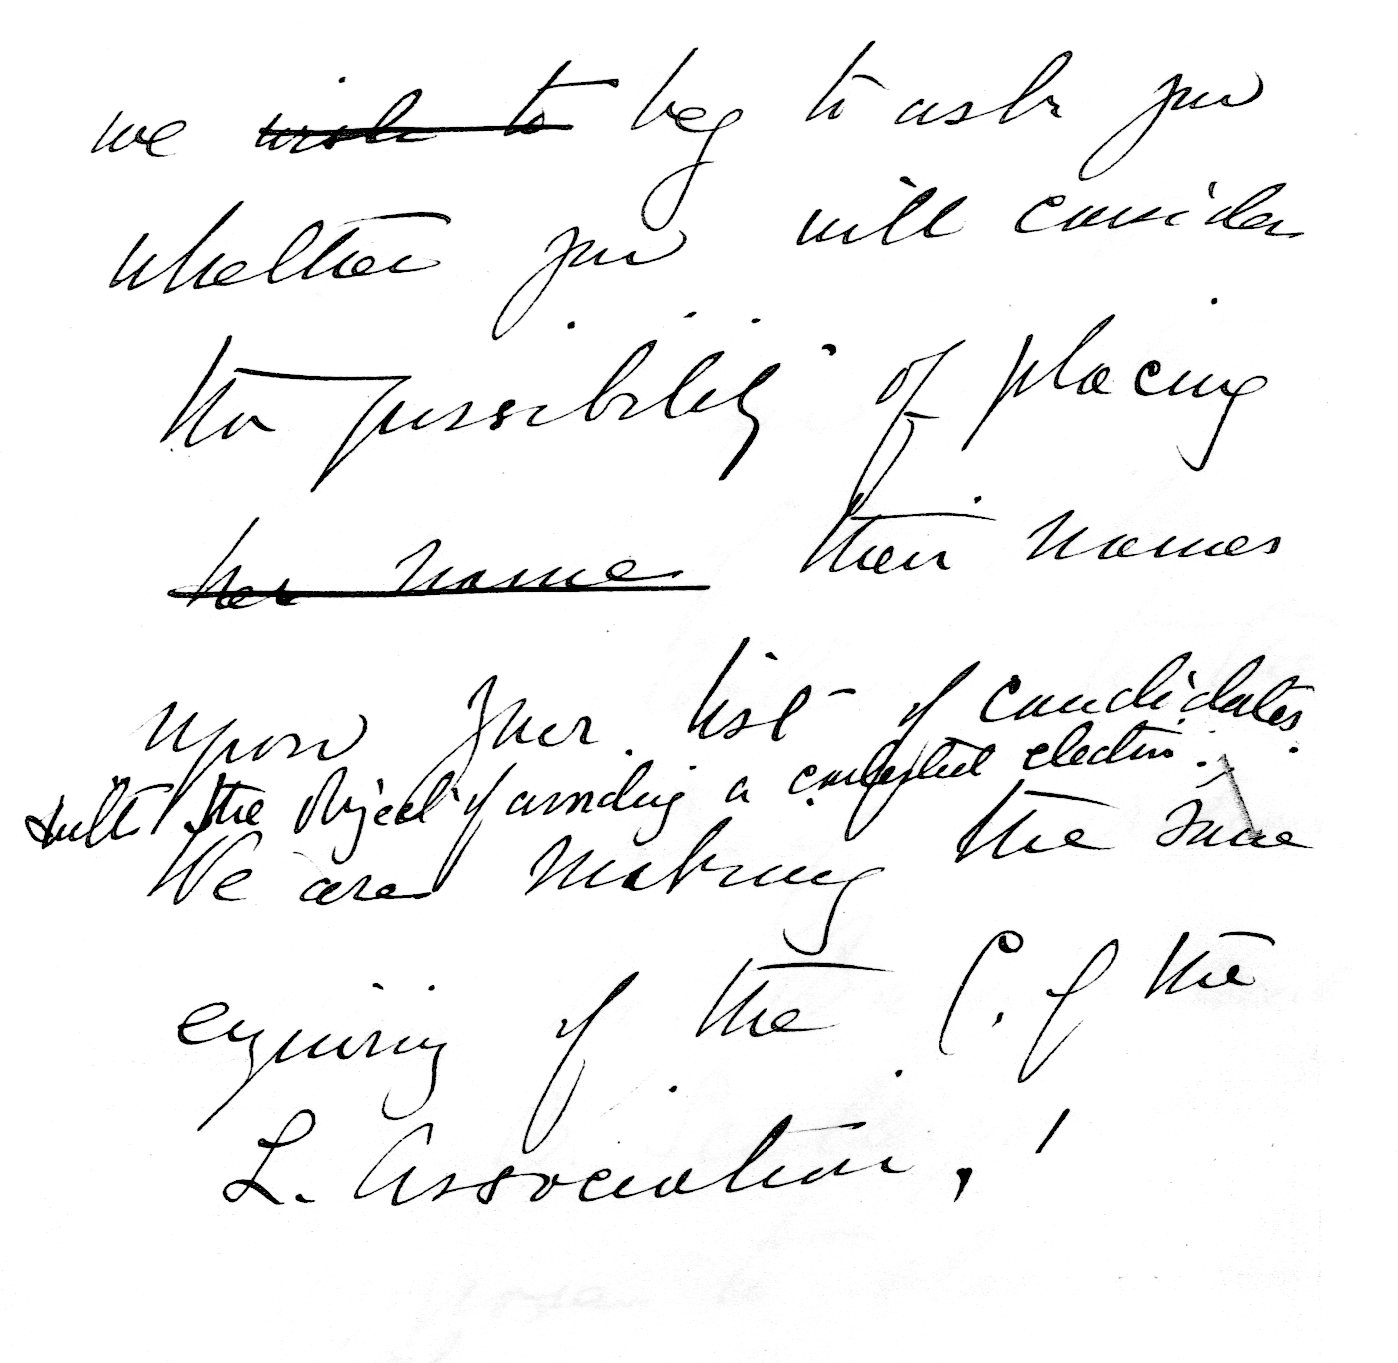 we wish to beg to ask you
whether you will consider
the possibility of placing
her name their names
upon your list of candidates.
with the object of avoiding a contested election.
We are making the same
enquiry of the C. of the
L. Association.